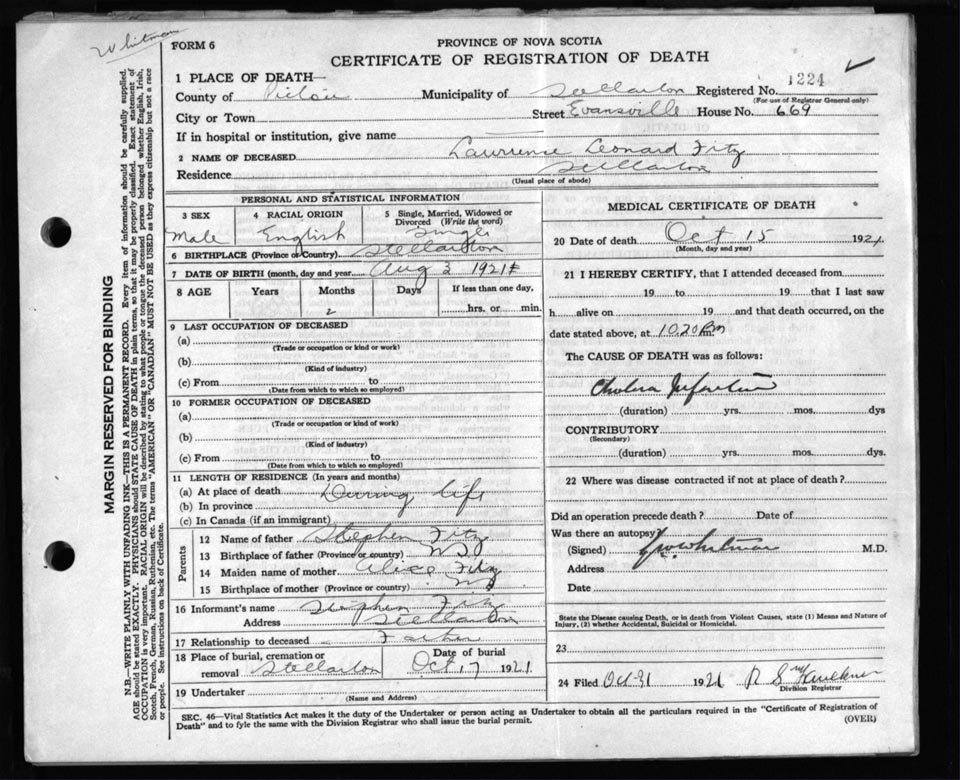 Whitman
FORM 6
PROVINCE OF NOVA SCOTIA
CERTIFICATE OF REGISTRATION OF DEATH
1224 ✓
1 PLACE OF DEATH—
County of Pictou Municipality of Stellarton Registered No.
(For use of Registrar General only)
City or Town Street Evansville House No. 669
If in hospital or institution, give name
2 NAME OF DECEASED Lawrence Leonard Fitz
Residence Stellarton
(Usual place of abode)
PERSONAL AND STATISTICAL INFORMATION
3 SEX 4 RACIAL ORIGIN 5 Single, Married, Widowed or Divorced (Write the word)
Male English Single
6 BIRTHPLACE (Province or Country) Stellarton
7 DATE OF BIRTH (month, day and year) Aug 3 1921
8 AGE Years Months Days If less than one day,
2 hrs. or min.
9 LAST OCCUPATION OF DECEASED
(a)
(Trade or occupation or kind or work)
(b)
(Kind of industry)
(c) From to
(Date from which to which so employed)
10 FORMER OCCUPATION OF DECEASED
(a)
(Trade or occupation or kind of work)
(b)
(Kind of industry)
(c) From to
(Date from which to which so employed)
11 LENGTH OF RESIDENCE (In years and months)
(a) At place of death During life
(b) In province
(c) In Canada (if an immigrant)
Parents
12 Name of father Stephen Fitz
13 Birthplace of father (Province or country) NS
14 Maiden name of mother Alice Fitz
15 Birthplace of mother (Province or country) NS
16 Informant's name Stephen Fitz
Address Stellarton
17 Relationship to deceased Father
18 Place of burial, cremation or removal Stellarton Date of burial Oct 17 1921
19 Undertaker
(Name and Address)
MEDICAL CERTIFICATE OF DEATH
20 Date of death Oct 15 1921
(Month, day and year)
21 I HEREBY CERTIFY, that I attended deceased from
19 to 19 that I last saw
h alive on 19 and that death occurred, on the
date stated above, at 10.20 Pm
The CAUSE OF DEATH was as follows:
Cholera Infantum
(duration) yrs. mos. dys
CONTRIBUTORY
(Secondary)
(duration) yrs. mos. dys.
22 Where was disease contracted if not at place of death?
Did an operation precede death? Date of
Was there an autopsy?
(Signed) Whitman M.D.
Address
Date
State the Disease causing Death, or in death from Violent Causes, state (1) Means and Nature of
Injury, (2) whether Accidental, Suicidal or Homicidal.
23
24 Filed Oct 31 1921 R S
Division Registrar
SEC. 46—Vital Statistics Act makes it the duty of the Undertaker or person acting as Undertaker to obtain all the particulars required in the "Certificate of Registration of
Death" and to fyle the same with the Division Registrar who shall issue the burial permit.
(OVER)
MARGIN RESERVED FOR BINDING
N.B.—WRITE PLAINLY WITH UNFADING INK—THIS IS A PERMANENT RECORD. Every item of information should be carefully supplied.
AGE should be stated EXACTLY. PHYSICIANS should STATE CAUSE OF DEATH in plain terms, so that it may be properly classified. Exact statement of
OCCUPATION is very important. RACIAL ORIGIN will be described by stating to what people or tongue the deceased person belonged whether English, Irish,
Scotch, French, German, Russian, Ruthenian, etc. The terms "AMERICAN" OR "CANADIAN" MUST NOT BE USED as they express citizenship but not a race
or people. See instructions on back of Certificate.